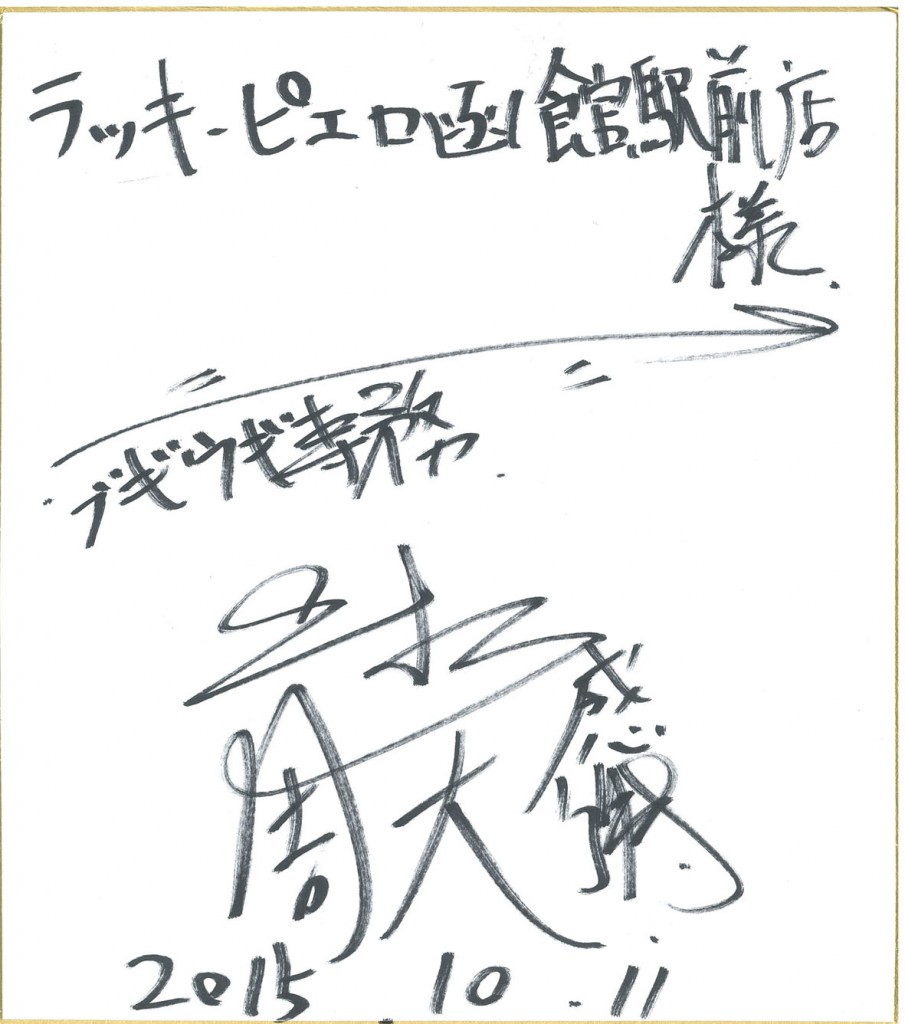 ラッキーピエロ函館駅前店
様
ブギウギ専務
上杉
周大
感謝
2015.10.11